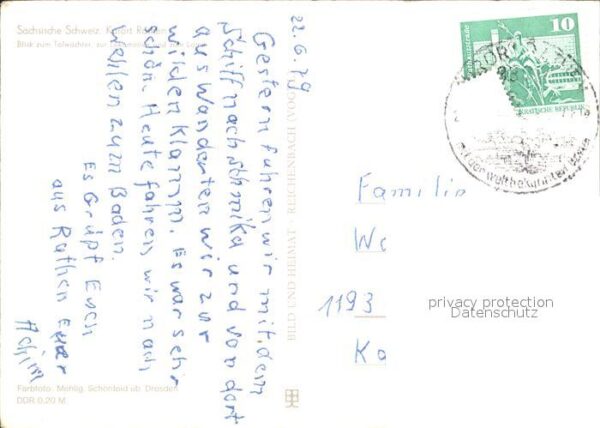 Sächsische Schweiz, Kurort Rathen
Blick zum Talwächter, zur
22.6.79
Gestern fuhren wir mit dem
Schiff nach Schmika und von dort
aus wanderten wir zur
wilden Klamm. Es war sehr
schön. Heute fahren wir nach
Wehlen zum Baden.
Es Grüßt Euch
aus Rathen Euer
Achim
Farbfoto: Mehlig, Schönfeld üb. Dresden
DDR 0,20 M
BILD UND HEIMAT · REICHENBACH (VOGTL)
10
KURORT RATHEN
mit der weltbekannten
Familie
We
1193
Ka
privacy protection
Datenschutz